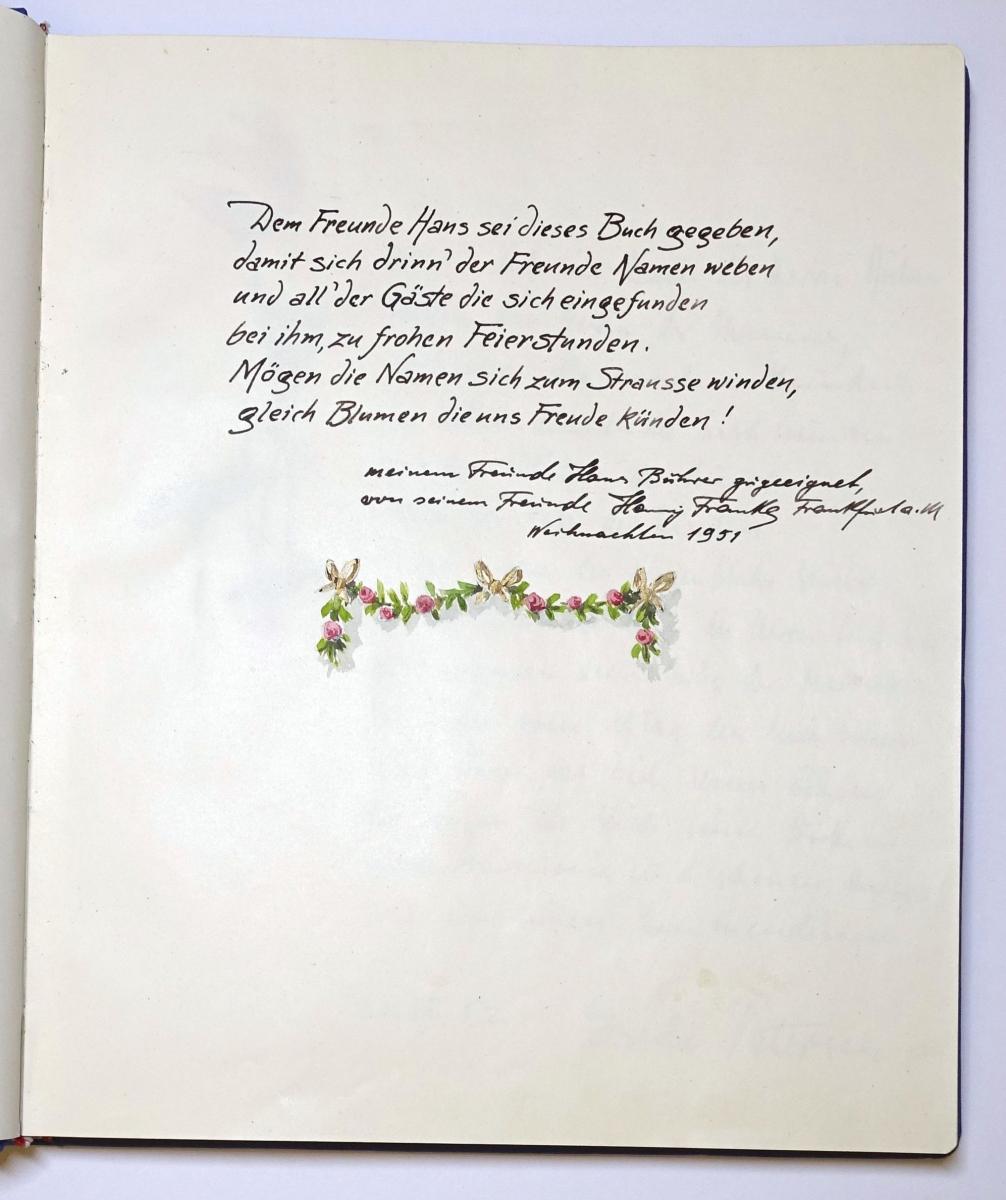 Dem Freunde Hans sei dieses Buch gegeben,
damit sich drinn' der Freunde Namen weben
und all' der Gäste die sich eingefunden
bei ihm, zu frohen Feierstunden.
Mögen die Namen sich zum Strausse winden,
gleich Blumen die uns Freude künden!
meinem Freunde Hans Bührer zugeeignet,
von seinem Freunde Franke Frankfurt a. M
Weihnachten 1951